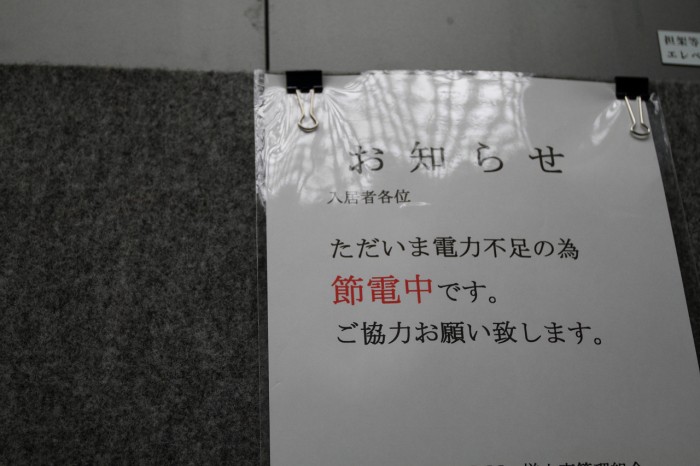 担架等
エレベ
お知らせ
入居者各位
ただいま電力不足の為
節電中です。
ご協力お願い致します。